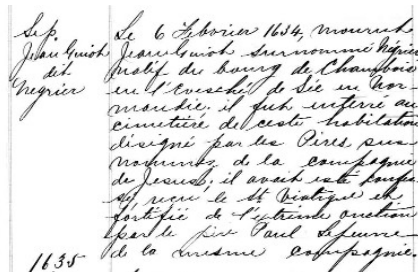 Sep.
Jean Guiot
dit
Negrier
Le 6 Février 1634, mourut
Jean Guiot surnommé Négrier
natif du bourg de Chambois
en l'Evesché de Sée en Nor-
mandie, il fut enterré au
cimetière de ceste habitation
désigné par les Pères sus
nommez de la compagnie
de Jesus; il avait esté
reçu le St Viatique et
fortifié de l'extrême onction
par le père Paul Lejeune
de la mesme compagnie
1635